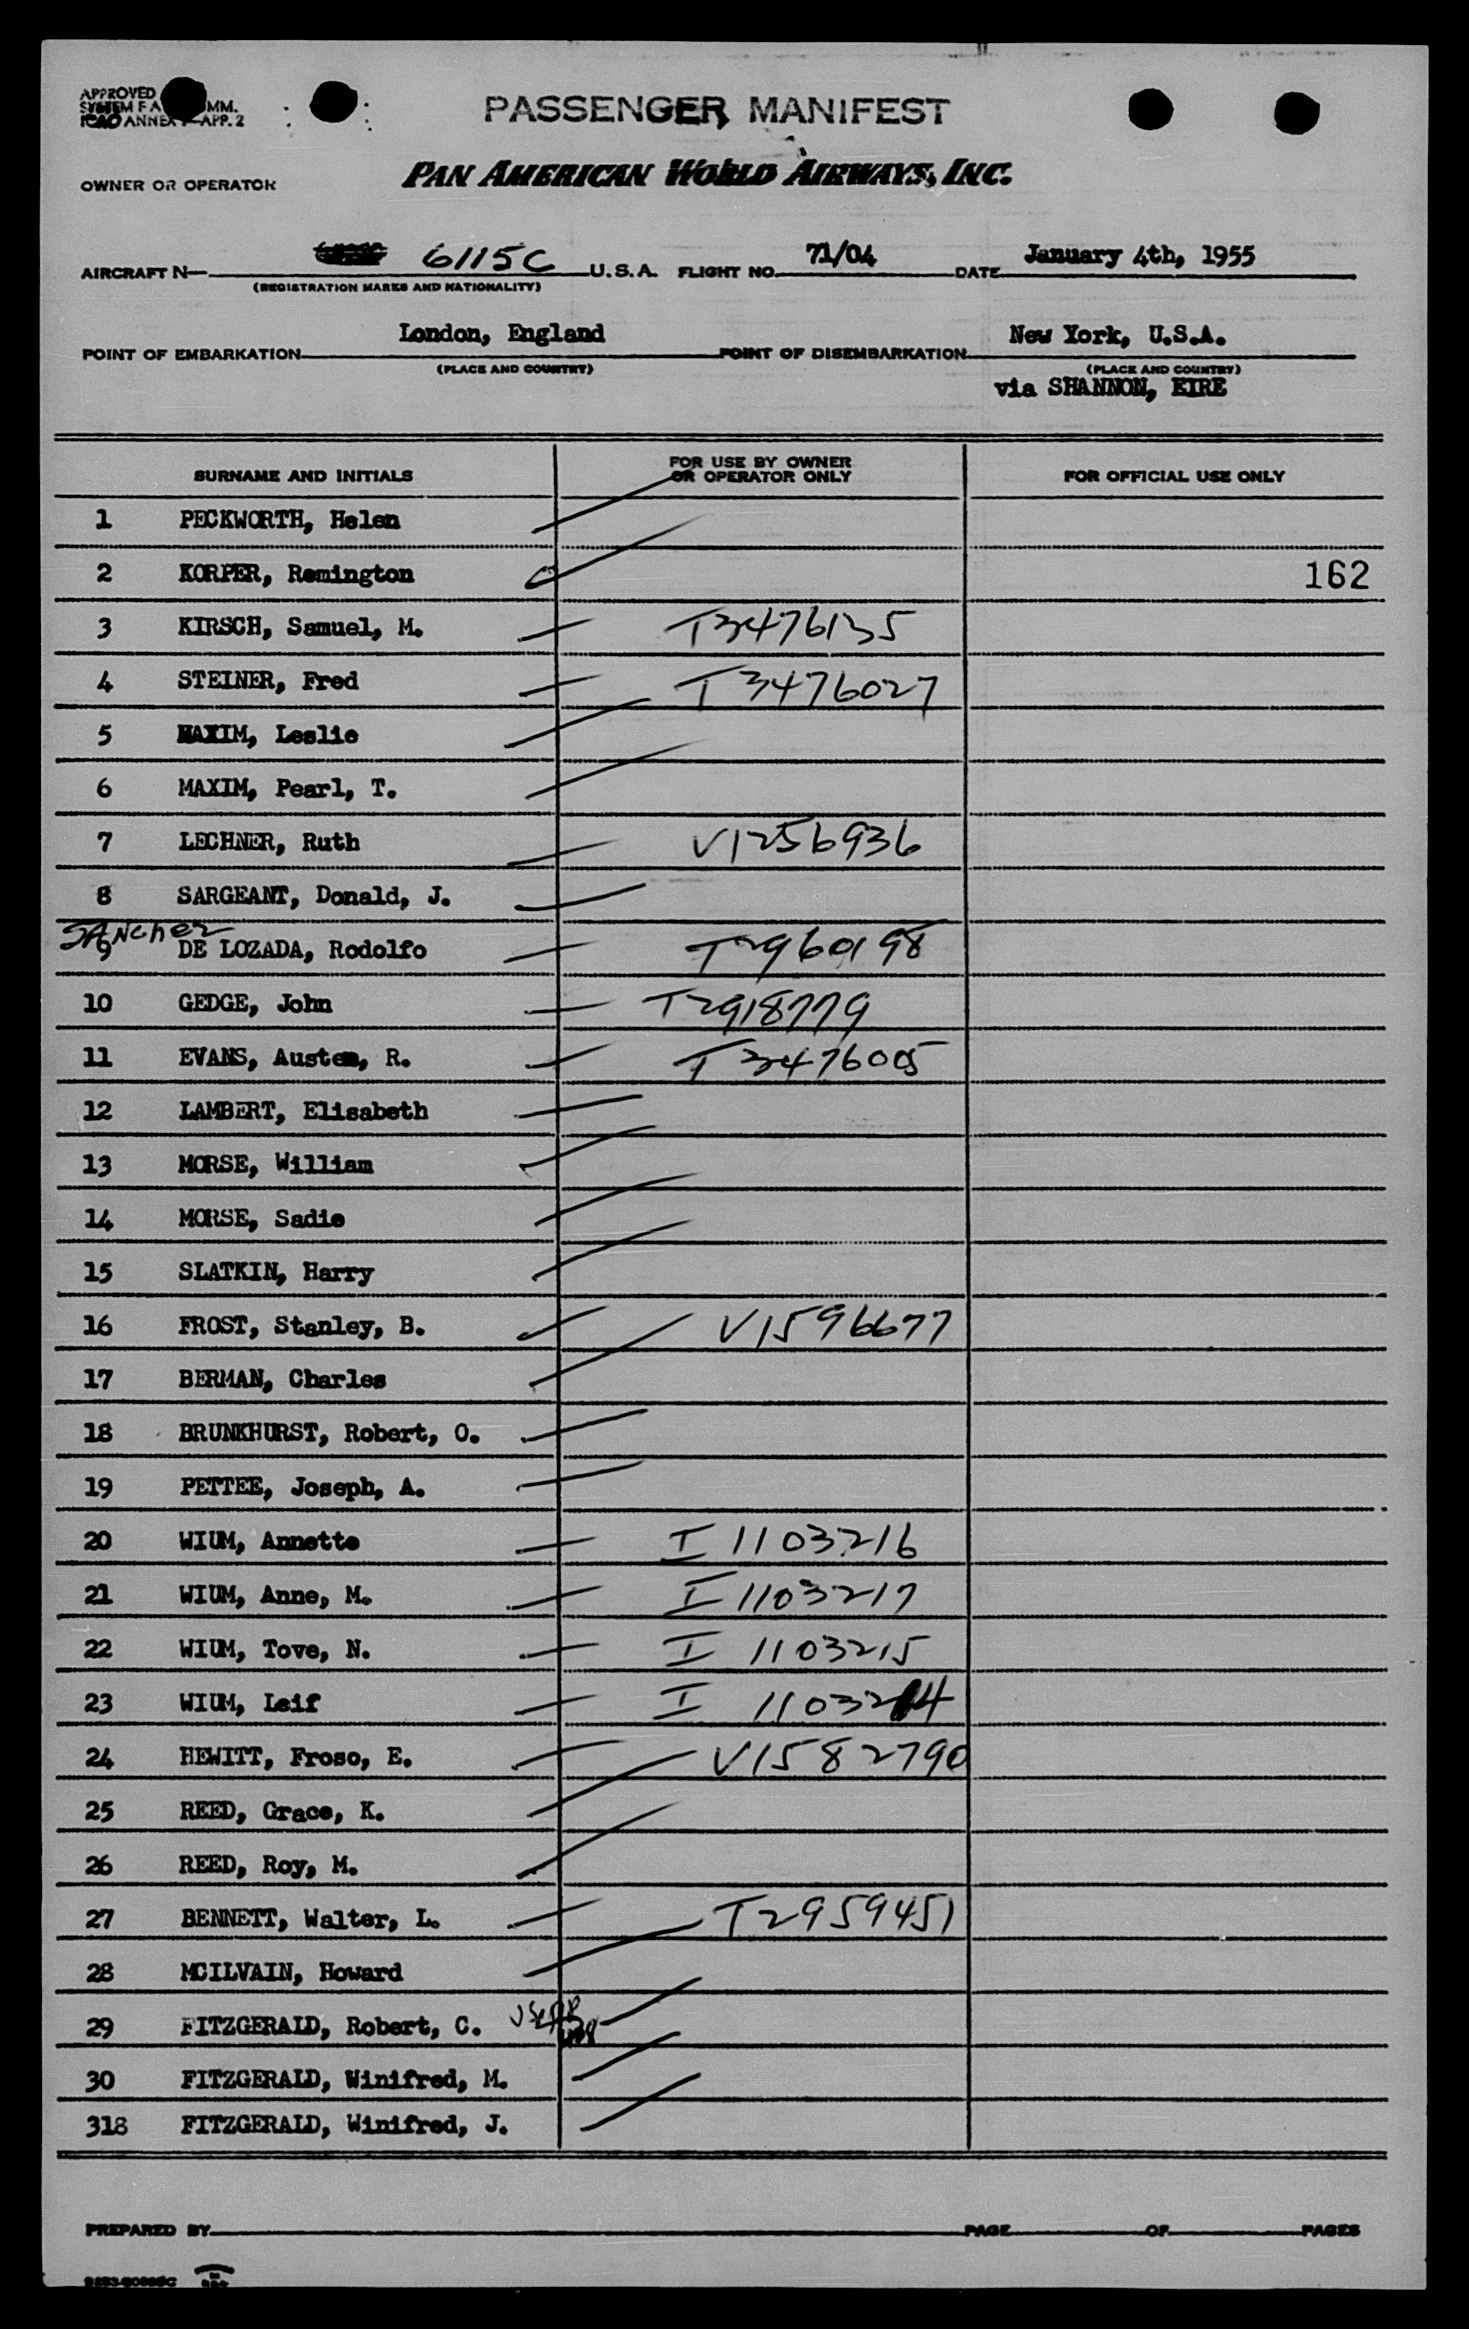 APPROVED
SYSTEM F A MM.
ICAO ANNEX APP. 2
PASSENGER MANIFEST
OWNER OR OPERATOR PAN AMERICAN WORLD AIRWAYS, INC.
AIRCRAFT N 6115C U.S.A. FLIGHT NO. 71/04 DATE January 4th, 1955
(REGISTRATION MARKS AND NATIONALITY)
POINT OF EMBARKATION London, England POINT OF DISEMBARKATION New York, U.S.A.
(PLACE AND COUNTRY) (PLACE AND COUNTRY)
via SHANNON, EIRE
SURNAME AND INITIALS FOR USE BY OWNER OR OPERATOR ONLY FOR OFFICIAL USE ONLY
1 PECKWORTH, Helen
2 KORPER, Remington 162
3 KIRSCH, Samuel, M. T3476135
4 STEINER, Fred T3476027
5 MAXIM, Leslie
6 MAXIM, Pearl, T.
7 LECHNER, Ruth V1256936
8 SARGEANT, Donald, J.
SANCHEZ
9 DE LOZADA, Rodolfo T2960198
10 GEDGE, John T2918779
11 EVANS, Austen, R. T3476005
12 LAMBERT, Elisabeth
13 MORSE, William
14 MORSE, Sadie
15 SLATKIN, Harry
16 FROST, Stanley, B. V1596677
17 BERMAN, Charles
18 BRUNKHURST, Robert, O.
19 PETTEE, Joseph, A.
20 WIUM, Annette I 1103216
21 WIUM, Anne, M. I 1103217
22 WIUM, Tove, N. I 1103215
23 WIUM, Leif I 1103214
24 HEWITT, Froso, E. V1582790
25 REED, Grace, K.
26 REED, Roy, M.
27 BENNETT, Walter, L. T2959451
28 MCILVAIN, Howard
29 FITZGERALD, Robert, C.
30 FITZGERALD, Winifred, M.
318 FITZGERALD, Winifred, J.
PREPARED BY PAGE OF PAGES